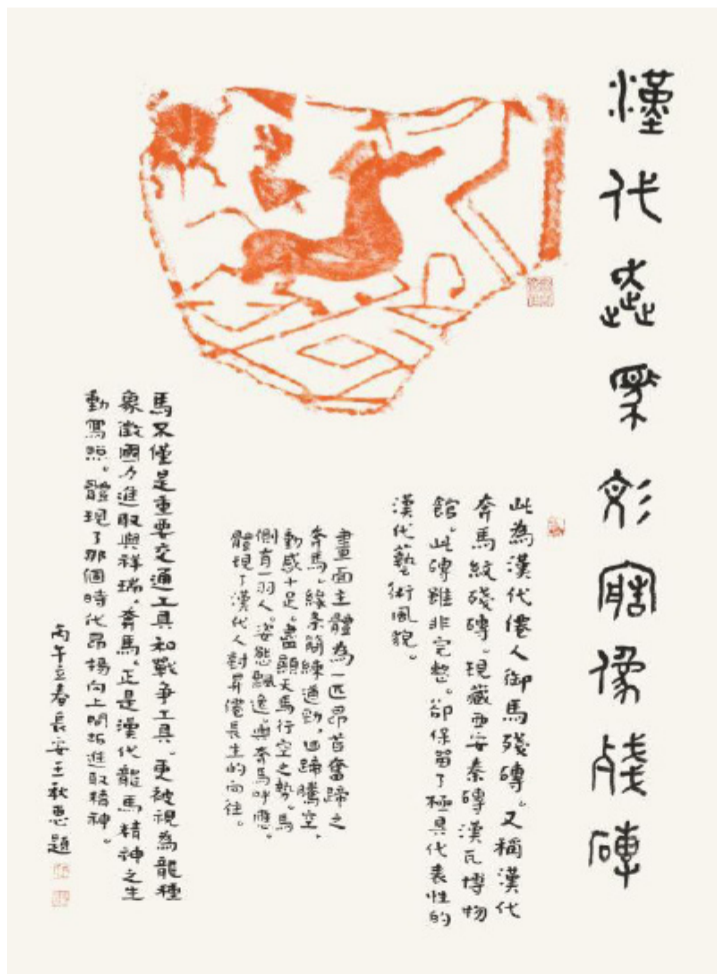 漢代像殘磚
此為漢代僊人御馬殘磚。又稱漢代
奔馬紋殘磚。現藏西安秦磚漢瓦博物
館。此磚雖非完整。卻保留了極具代表性的
漢代藝術風貌。
畫面主體為一匹昂首奮蹄之
奔馬。線条簡練遒勁。四蹄騰空、
動感十足。盡顯天馬行空之勢。馬
側有一羽人。姿態飄逸。與奔馬呼應。
體現了漢代人對昇僊長生的向往。
馬不僅是重要交通工具和戰争工具。更被視為龍種
象徵國力進取與祥瑞。奔馬。正是漢代龍馬精神之生
動寫照。體現了那個時代昂揚向上開拓進取精神。
丙午立春長安王秋惠題